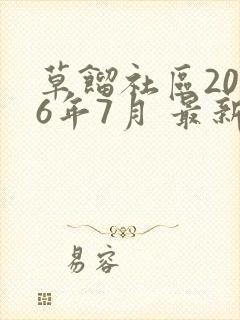 草餾社區20
6年7月 最新
易容